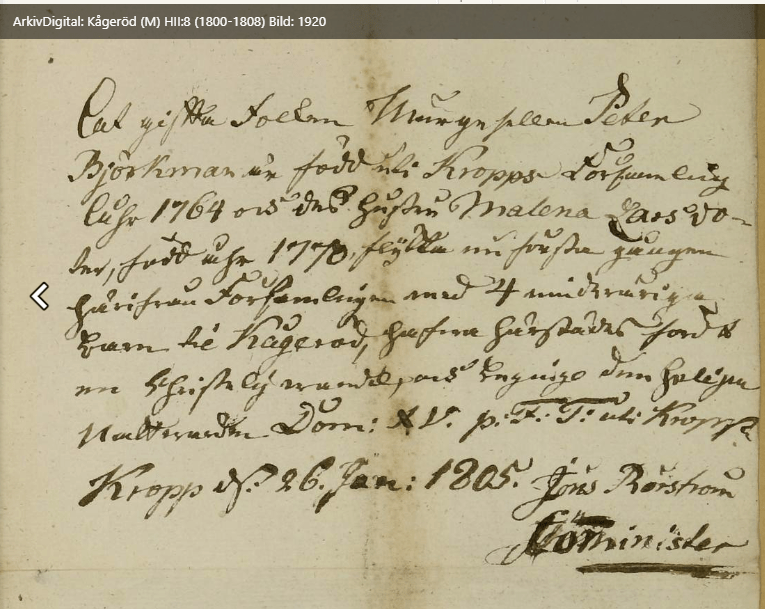 ArkivDigital: Kågeröd (M) HII:8 (1800-1808) Bild: 1920
At gifta Folken Murgesellen Peter
Björkman är född uti Kropps Församling
åhr 1764 och des Hustru Malena Larsdo-
ter, född åhr 1770, flytta nu första gången
härifrån Församlingen med 4 minderåriga
barn til Kågeröd, hafva härstädes ford
en Christelig vandel, och begingo den heliga
Nattvarden Dom: XV. p. T: uti Kropp
Kropp d. 26. Jan: 1805. Jöns Rörström
Comminister